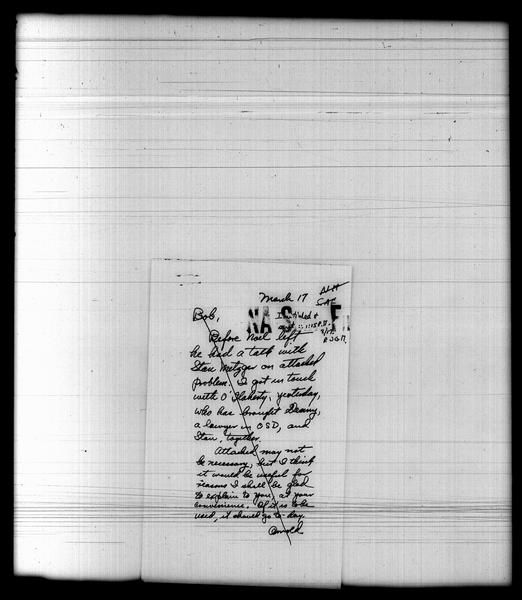 March 17
Bob,
Before Noel left
he had a talk with
Stan Metzger on attached
problem. I got in touch
with O'Flaherty, yesterday,
who has brought Denny,
a lawyer in OSD, and
Stan, together.
Attached may not
be necessary, but I think
it would be useful for
reasons I shall be glad
to explain to you at your
convenience. If it is to be
used, it should go to-day.
Arnold